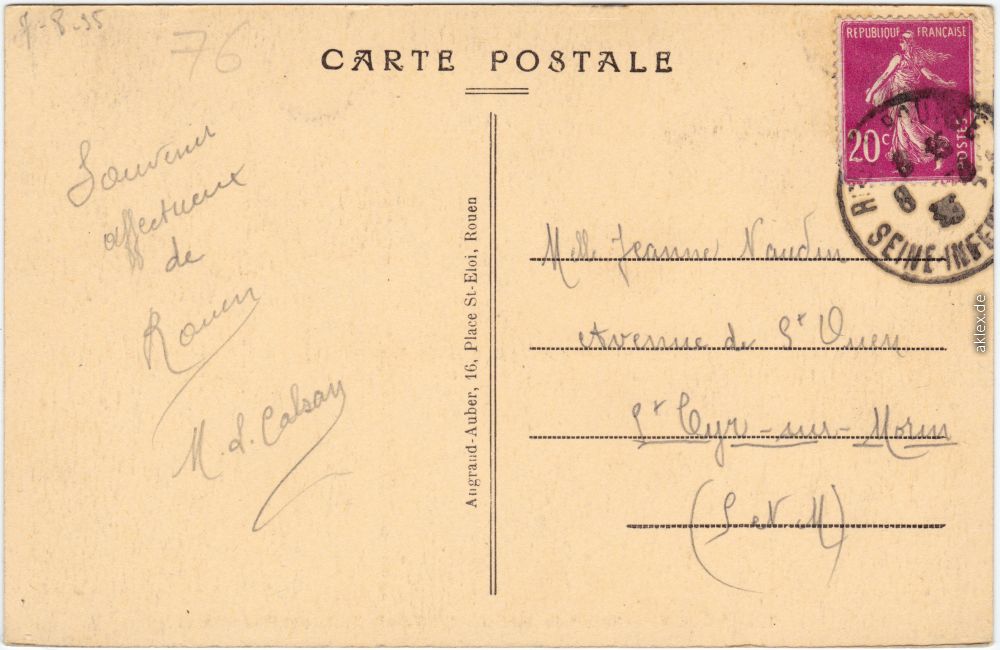 7-8-35
76
CARTE POSTALE
REPUBLIQUE FRANÇAISE
20c
POSTES
SEINE-INFE
Souvenir
affectueux
de
Rouen
M. L. Calsan
Angrand-Auber, 16, Place St-Eloi, Rouen
Melle Jeanne Naudin
Avenue de St Ouen
St Cyr-sur-Morin
(S et M)
aklex.de